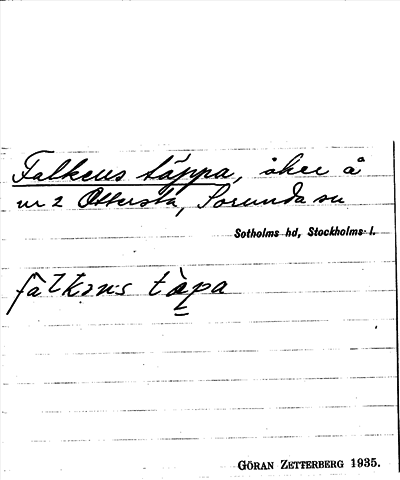 Falkens täppa, åker å
nr 2 Ottersta, Sorunda sn
Sotholms hd, Stockholms l.
fàlkɩns tàpa
GÖRAN ZETTERBERG 1935.